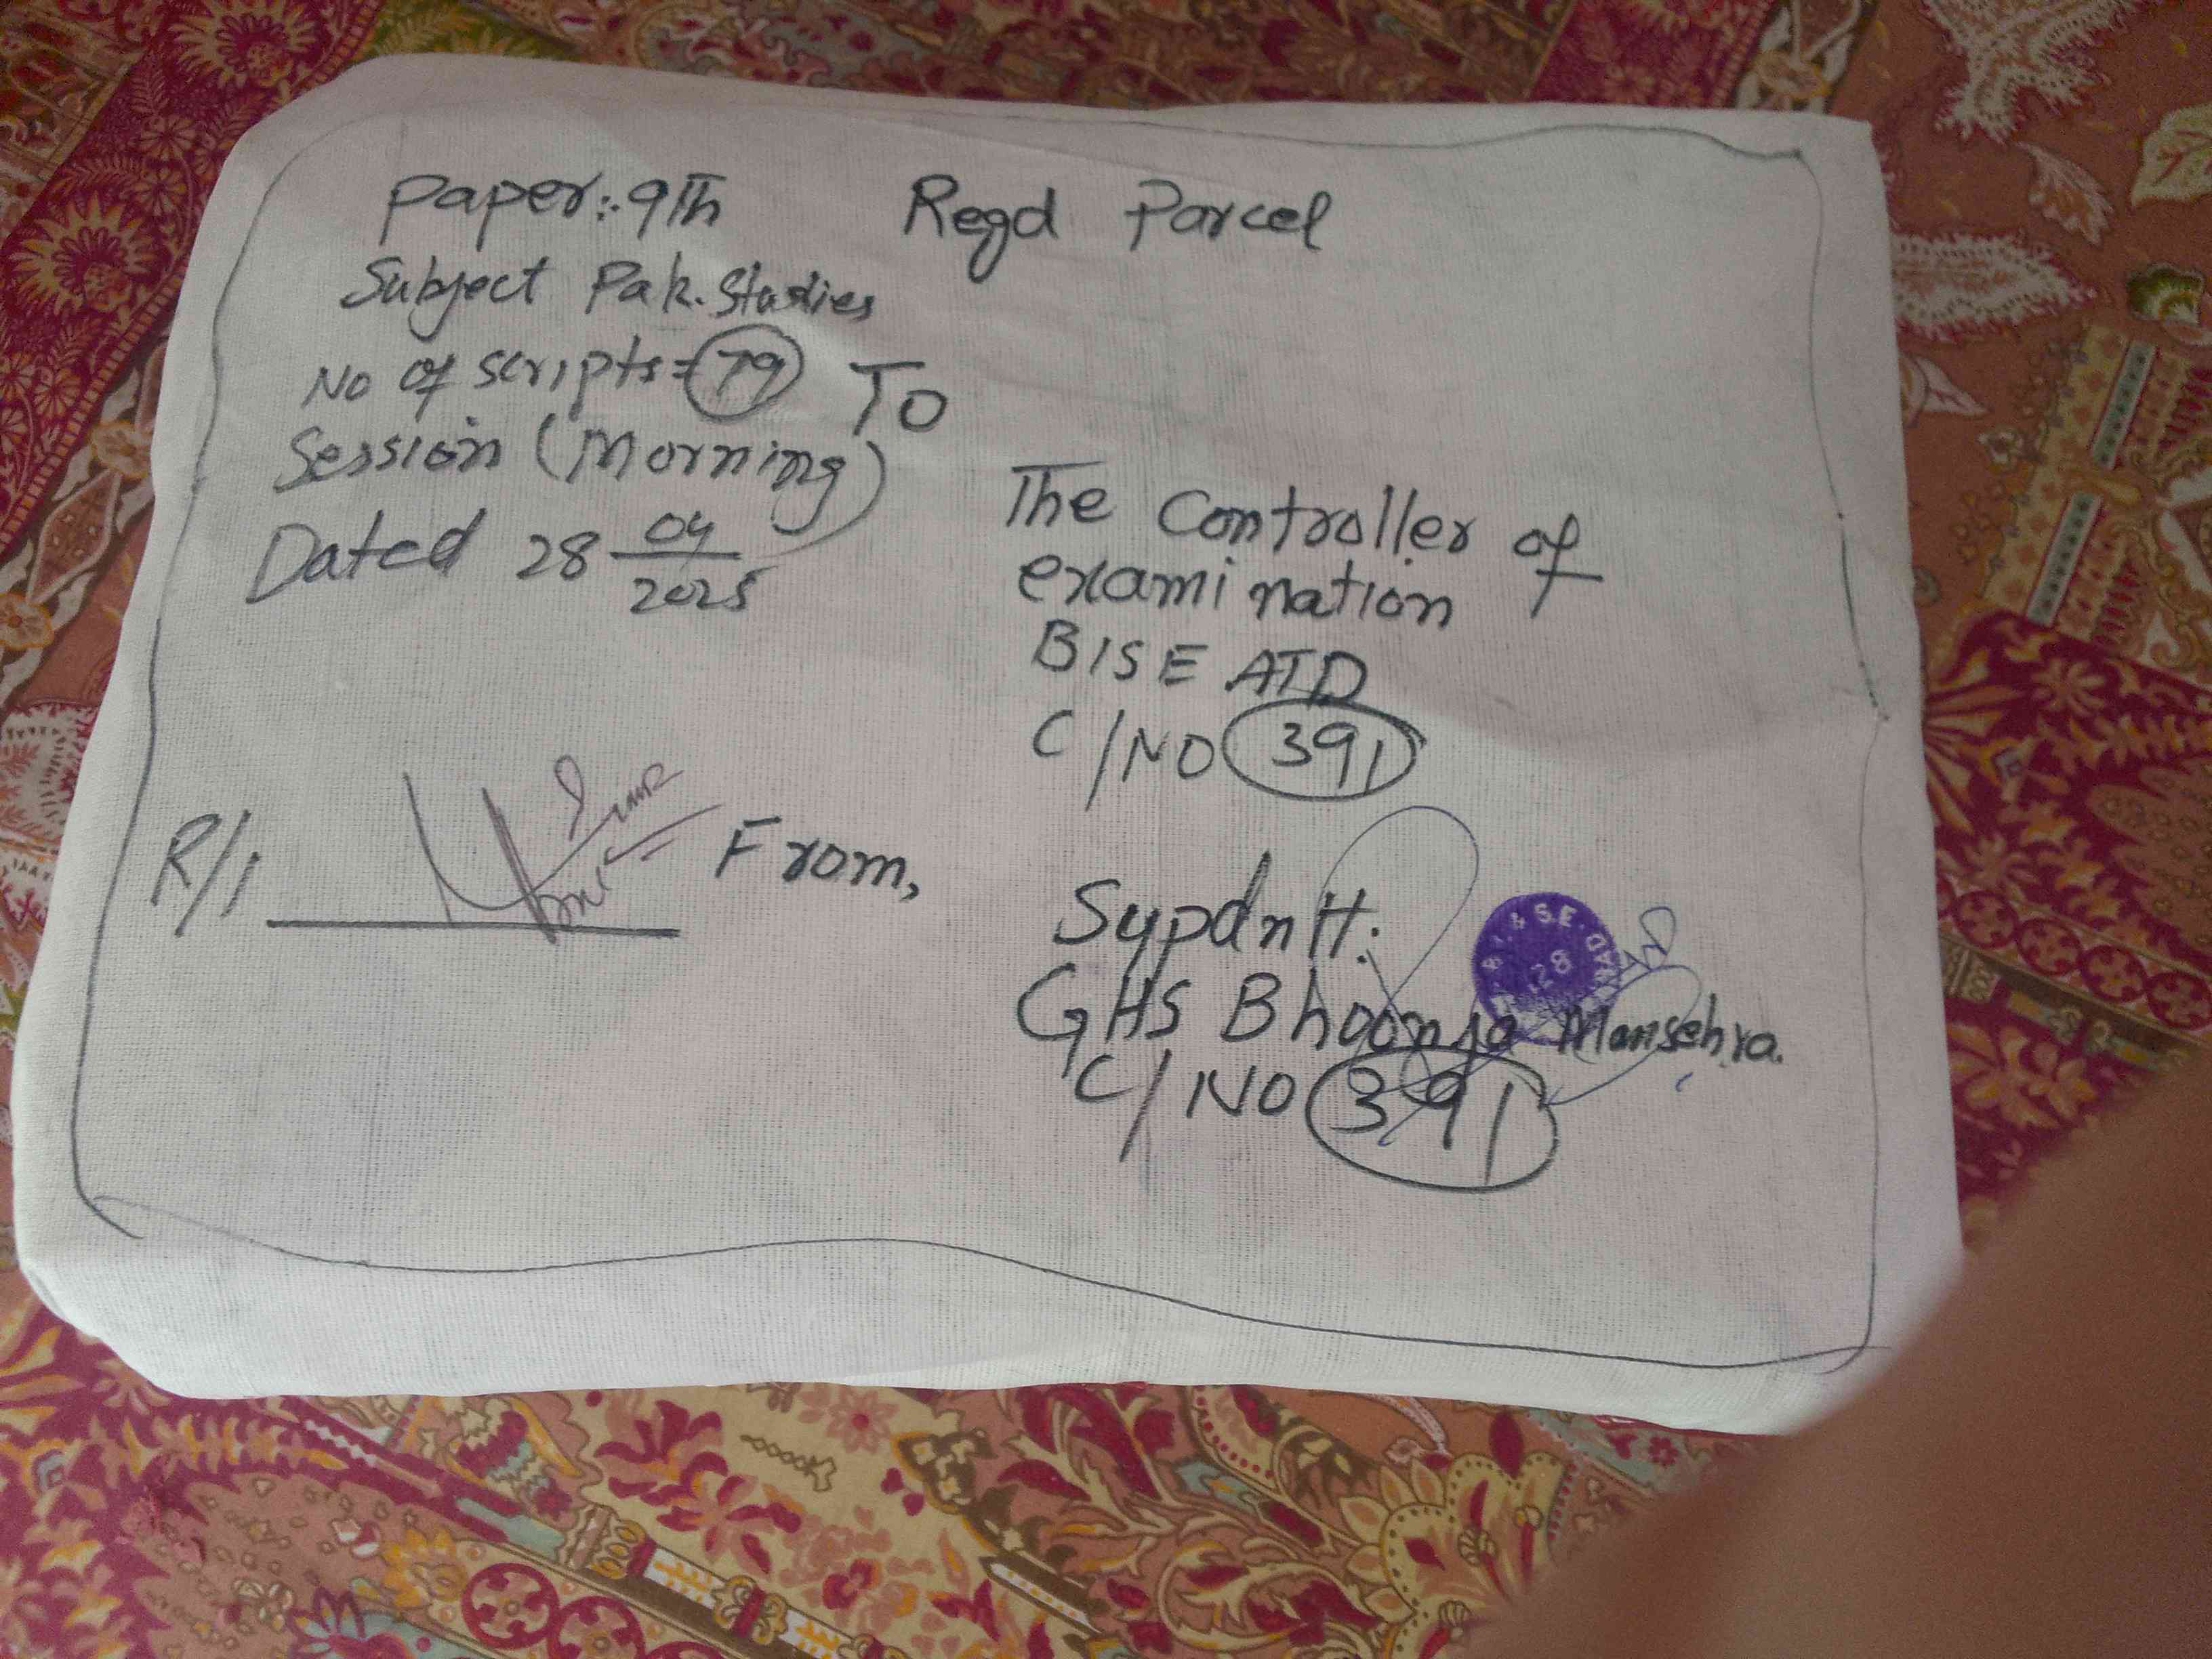 Paper:. 9Th
Regd Parcel
Subject Pak. Studies
No of scripts = 79
Session (Morning)
Dated 28 04/2025
To
The Controller of
examination
BISE ATD
C/NO 391
R/I
From,
Sypdntt:
GHS Bhoonja Mansehra.
C/NO 391
B.I. & S.E.
28